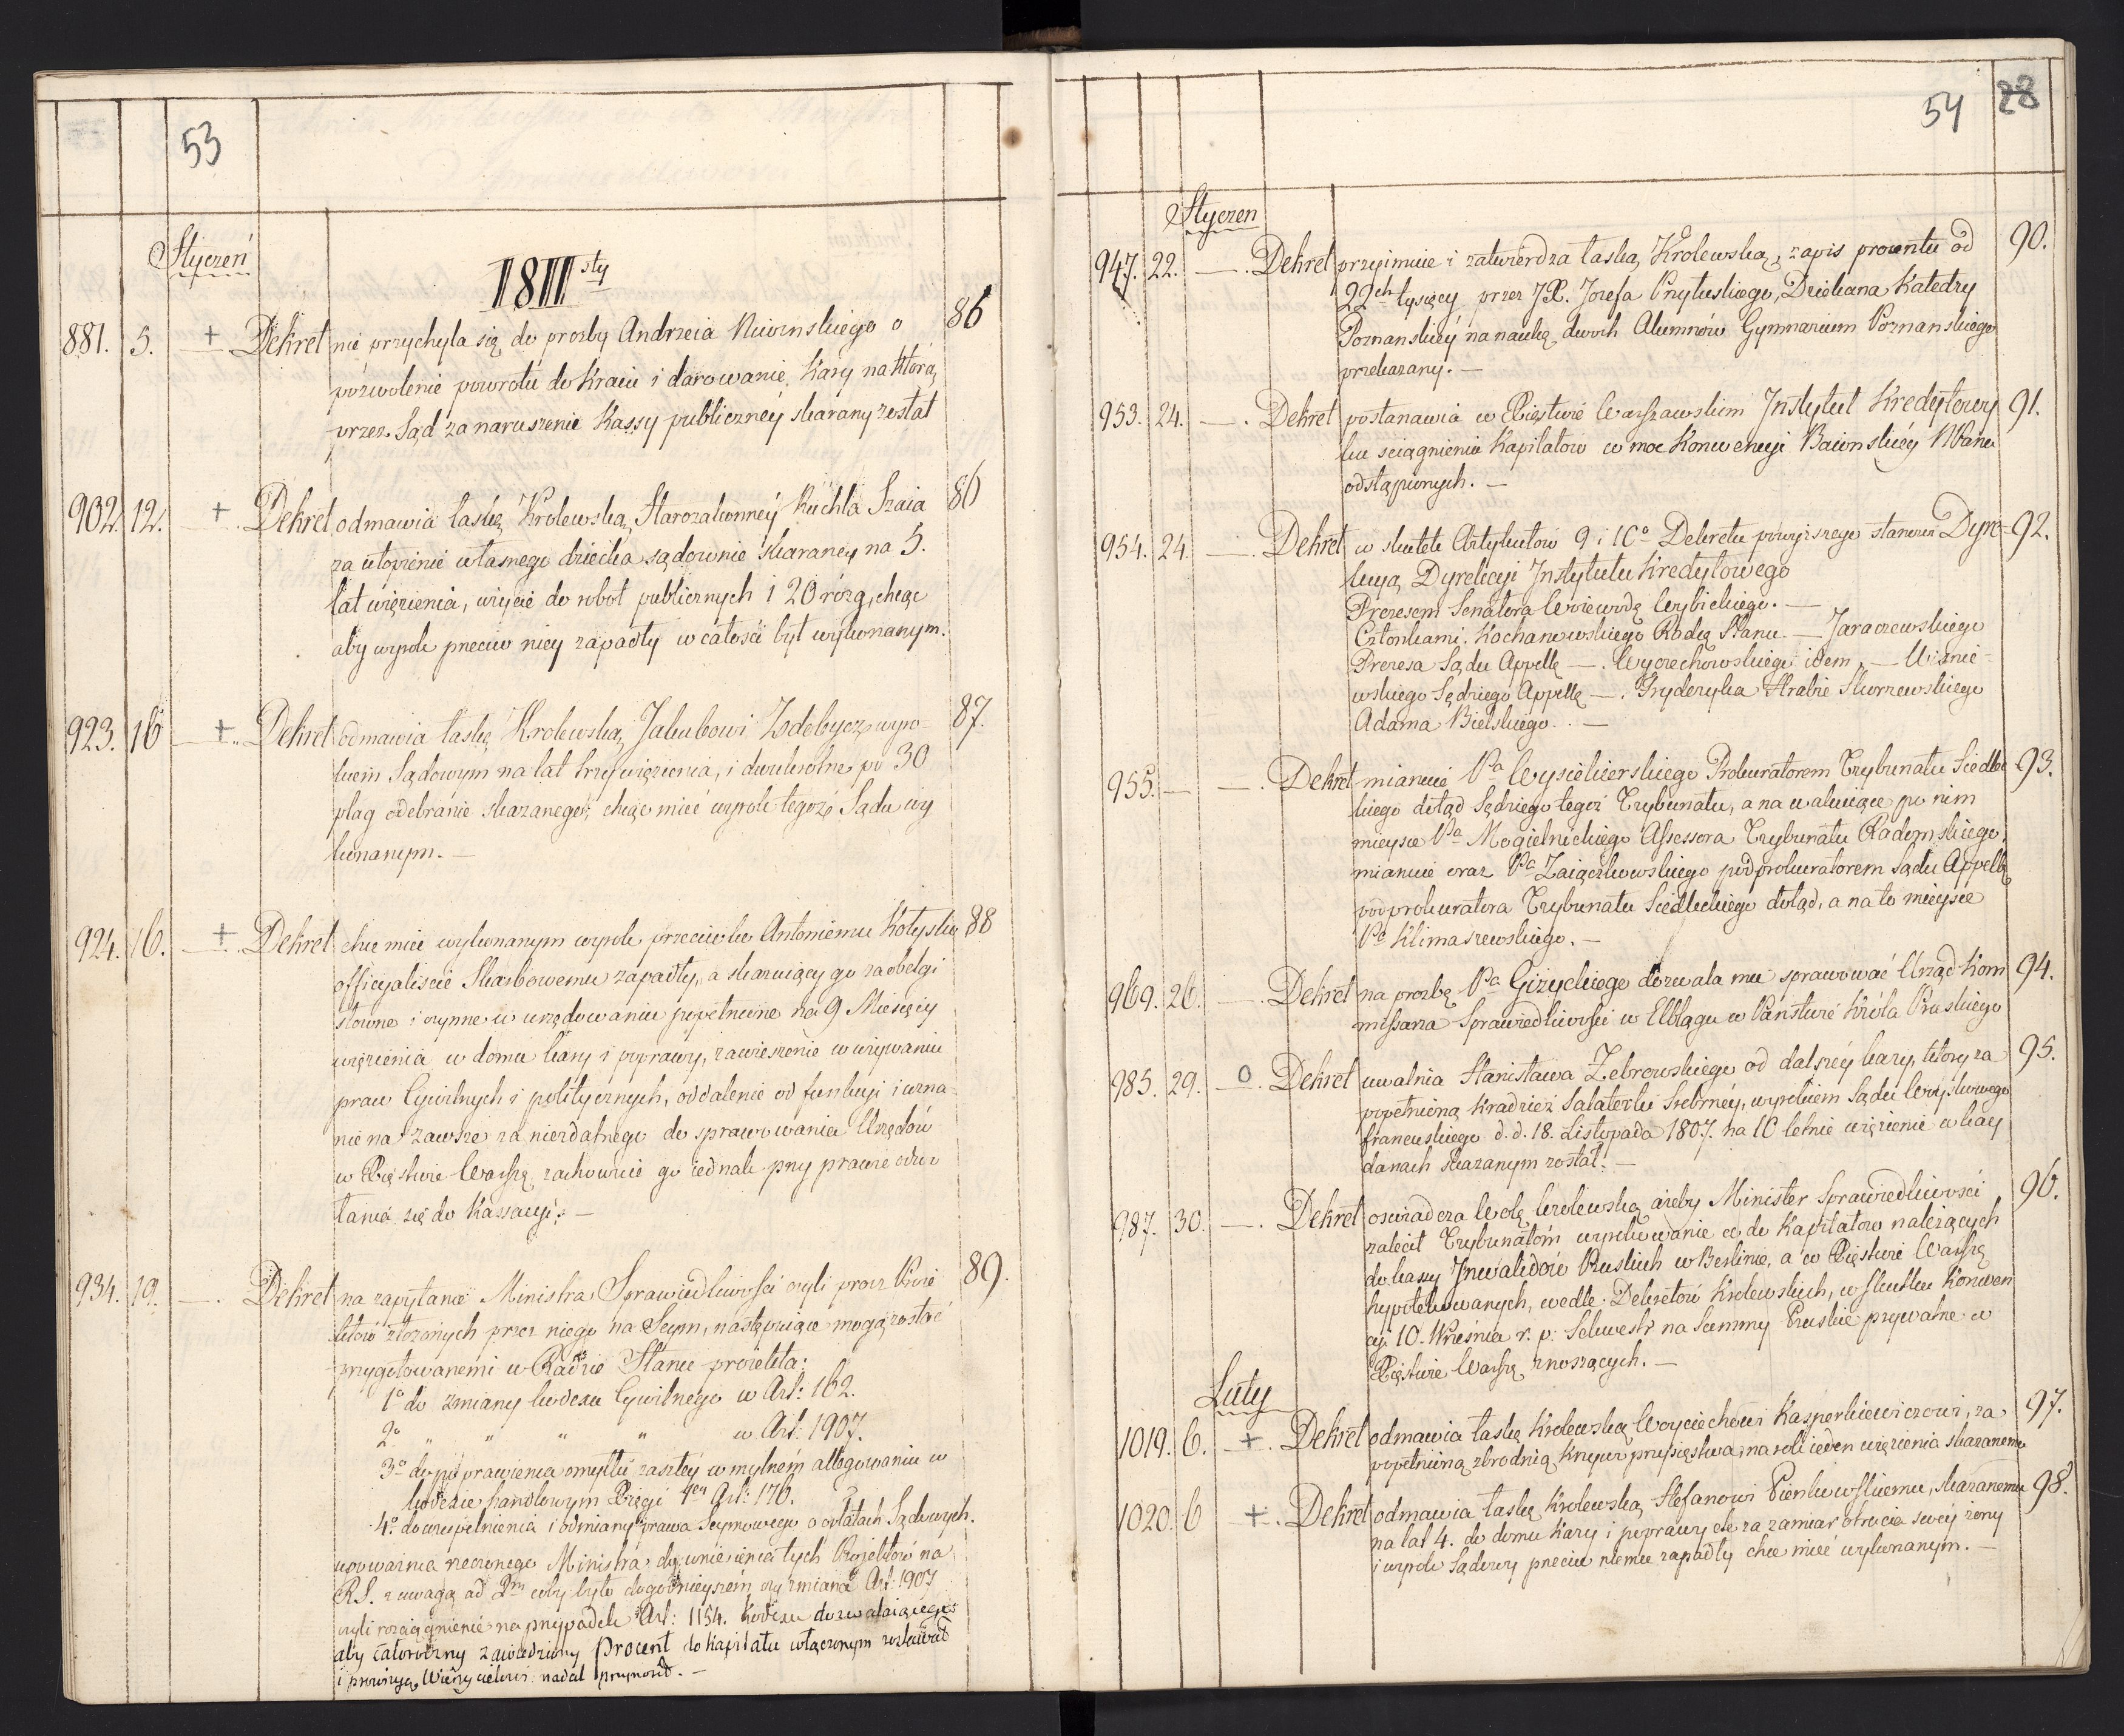 53
Styczeń
1811sty
881. 5. + Dekret nie przychyla się do prosby Andrzeia o 86
pozwolenie powrotu do Kraiu i darowanie Kary na którą
przez Sąd za naruszenie Kassy publiczney skarany został
902. 12. + Dekret odmawia łaskę Krolewską Starozakonney Ruchla Szaia 86
za utopienie własnego dziecka sądownie skaraney na 5.
lat więzienia, użycie do robot publicznych i 20 rózg, chcąc
aby wyrok przeciw niey zapadły w całosci był wykonanym.
923. 16 + Dekret odmawia łaskę Krolewską Jakubowi wyro- 87.
kiem Sądowym na lat trzy więzienia, i dwukrotne po 30
plag odebranie skazanego; chcąc mieć wyrok tegoż Sądu wy
konanym. —
924. 16. + Dekret chce mieć wykonanym wyrok przeciwko Antoniemu 88
officyaliscie Skarbowemu zapadły, a skazuiący go za obelgi
słowne i czynne w urzędowaniu popełnione na 9 Miesięcy
więzienia w domu kary i poprawy, zawieszenie w używaniu
praw Cywilnych i politycznych, oddalenie od funkcyi i uzna-
nie na zawsze za niezdatnego do sprawowania Urzędów
w Xięstwie Warszą zachowuie go iednak przy prawie odwo
łania się do Kassacyi. —
934. 19. — Dekret na zapytanie Ministra Sprawiedliwosci czyli procz Proie 89.
któw złożonych przez niego na Seym, następuiące mogą zostać
przygotowanemi w Radzie Stanu proiekta:
1o do zmiany kodexu Cywilnego w Art: 162.
2o " " " " w Art: 1907.
3o do poprawienia omyłki zaszłey w mylném allegowaniu w
kodexie handlowym Xięgi Art: 176.
4o do uzupełnienia i odmiany prawa Seymowego o opłatach Sądowych.
upoważnia rzeczonego Ministra do wniesienia tych Proiektów na
R.S. z uwagą ad 2m coby było dogodnieyszém czy zmiana Art: 1907
czyli rozciągnienie na przypadek Art: 1154. Kodexu dozwalaiącego
aby całoroczny zawiedziony Procent do kapitału włączonym zostawał
i prowizyą Wierzycielowi nadal przynosił. —
54 28
Styczen
947. 22. — Dekret przyimuie i zatwierdza łaską Krolewską, zapis procentu od 90.
22ch tysięcy przez JX. Jozefa Przyłuskiego, Dziekana Katedry
Poznanskiey na naukę dwoch Alumnów Gymnazium Poznanskiego
przekazany. —
953. 24. — Dekret postanawia w Xięstwie Warszawskim Instytut Kredytowy 91.
ku sciągnieniu Kapitałow w moc Konwencyi Baionskiey NPanu
odstąpionych. —
954. 24. — Dekret w skutek Artykułów 9 i 10o Dekretu powyższego stanowi Dyre- 92.
kcyą Dyrekcyi Instytutu Kredytowego
Prezesem Senatora Woiewodę Wybickiego. —
Członkami. Kochanowskiego Radcę Stanu. — Jaraczewskiego
Prezesa Sądu Appellę —. Wyczechowskiego idem. — Wisznie-
wskiego Sędziego Appellę —. Fryderyka Hrabię Skorzewskiego
Adama Bielskiego. . —
955. — — Dekret mianuie Pa Wysiekierskiego Prokuratorem Trybunału Siedlec 93.
kiego dotąd Sędziego tegoż Trybunału, a na wakuiące po nim
mieysce Pa Mogielnickiego Assessora Trybunału Radomskiego.
mianuie oraz Pa Zaiączkowskiego podprokuratorem Sądu Appellą
podprokuratora Trybunału Siedleckiego dotąd, a na to mieysce
Pa Klimaszewskiego. —
969. 26. — Dekret na prozbę Pa Giżyckiego dozwala mu sprawować Urząd Kom 94.
missarza Sprawiedliwosci w Elblągu w Państwie Króla Pruskiego
985. 29. o Dekret uwalnia Stanisława Zebrowskiego od dalszey kary, ktory za 95.
popełnioną kradzież Salaterki srebrney, wyrokiem Sądu Woyskowego
francuskiego d.d. 18. Listopada 1807. na 10 letnie więzienie w kay
danach skazanym został. —
987. 30. — Dekret oswiadcza Wolę krolewską ażeby Minister Sprawiedliwosci 96.
zalecił Trybunałom wyrokowanie co do Kapitałow należących
do kassy Inwalidów Pruskich w Berlinie, a w Xięstwie Warszą
hypotekowanych, wedle Dekretów Krolewskich, w skutku Konwen
cyi 10. Wrzesnia r. p. Sekwestr na Summy Pruskie prywatne w
Xięstwie Warszą znoszących. —
Luty
1019. 6. + Dekret odmawia łaskę Krolewską Woyciechowi Kasperkiewiczowi, za 97.
popełnioną zbrodnią krzywoprzysięstwa, na rok ieden więzienia skazanemu
1020. 6 + Dekret odmawia łaskę Krolewską Stefanowi Pienkowskiemu, skazanemu 98.
na lat 4. do domu Kary i poprawy za zamiar otrucia swey żony
i wyrok Sądowy przeciw niemu zapadły chce mieć wykonanym. —